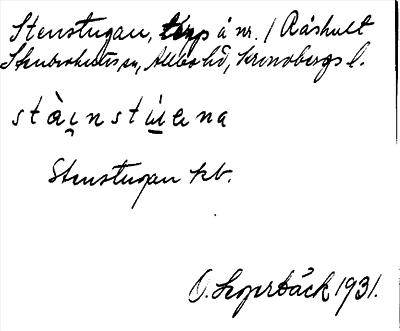 Stenstugan, torp å nr. 1 Råshult
Stenbrohults sn, Allbo hd, Kronobergs l.
stàinstúena
Stenstugan kb.
O. Logerbäck 1931.